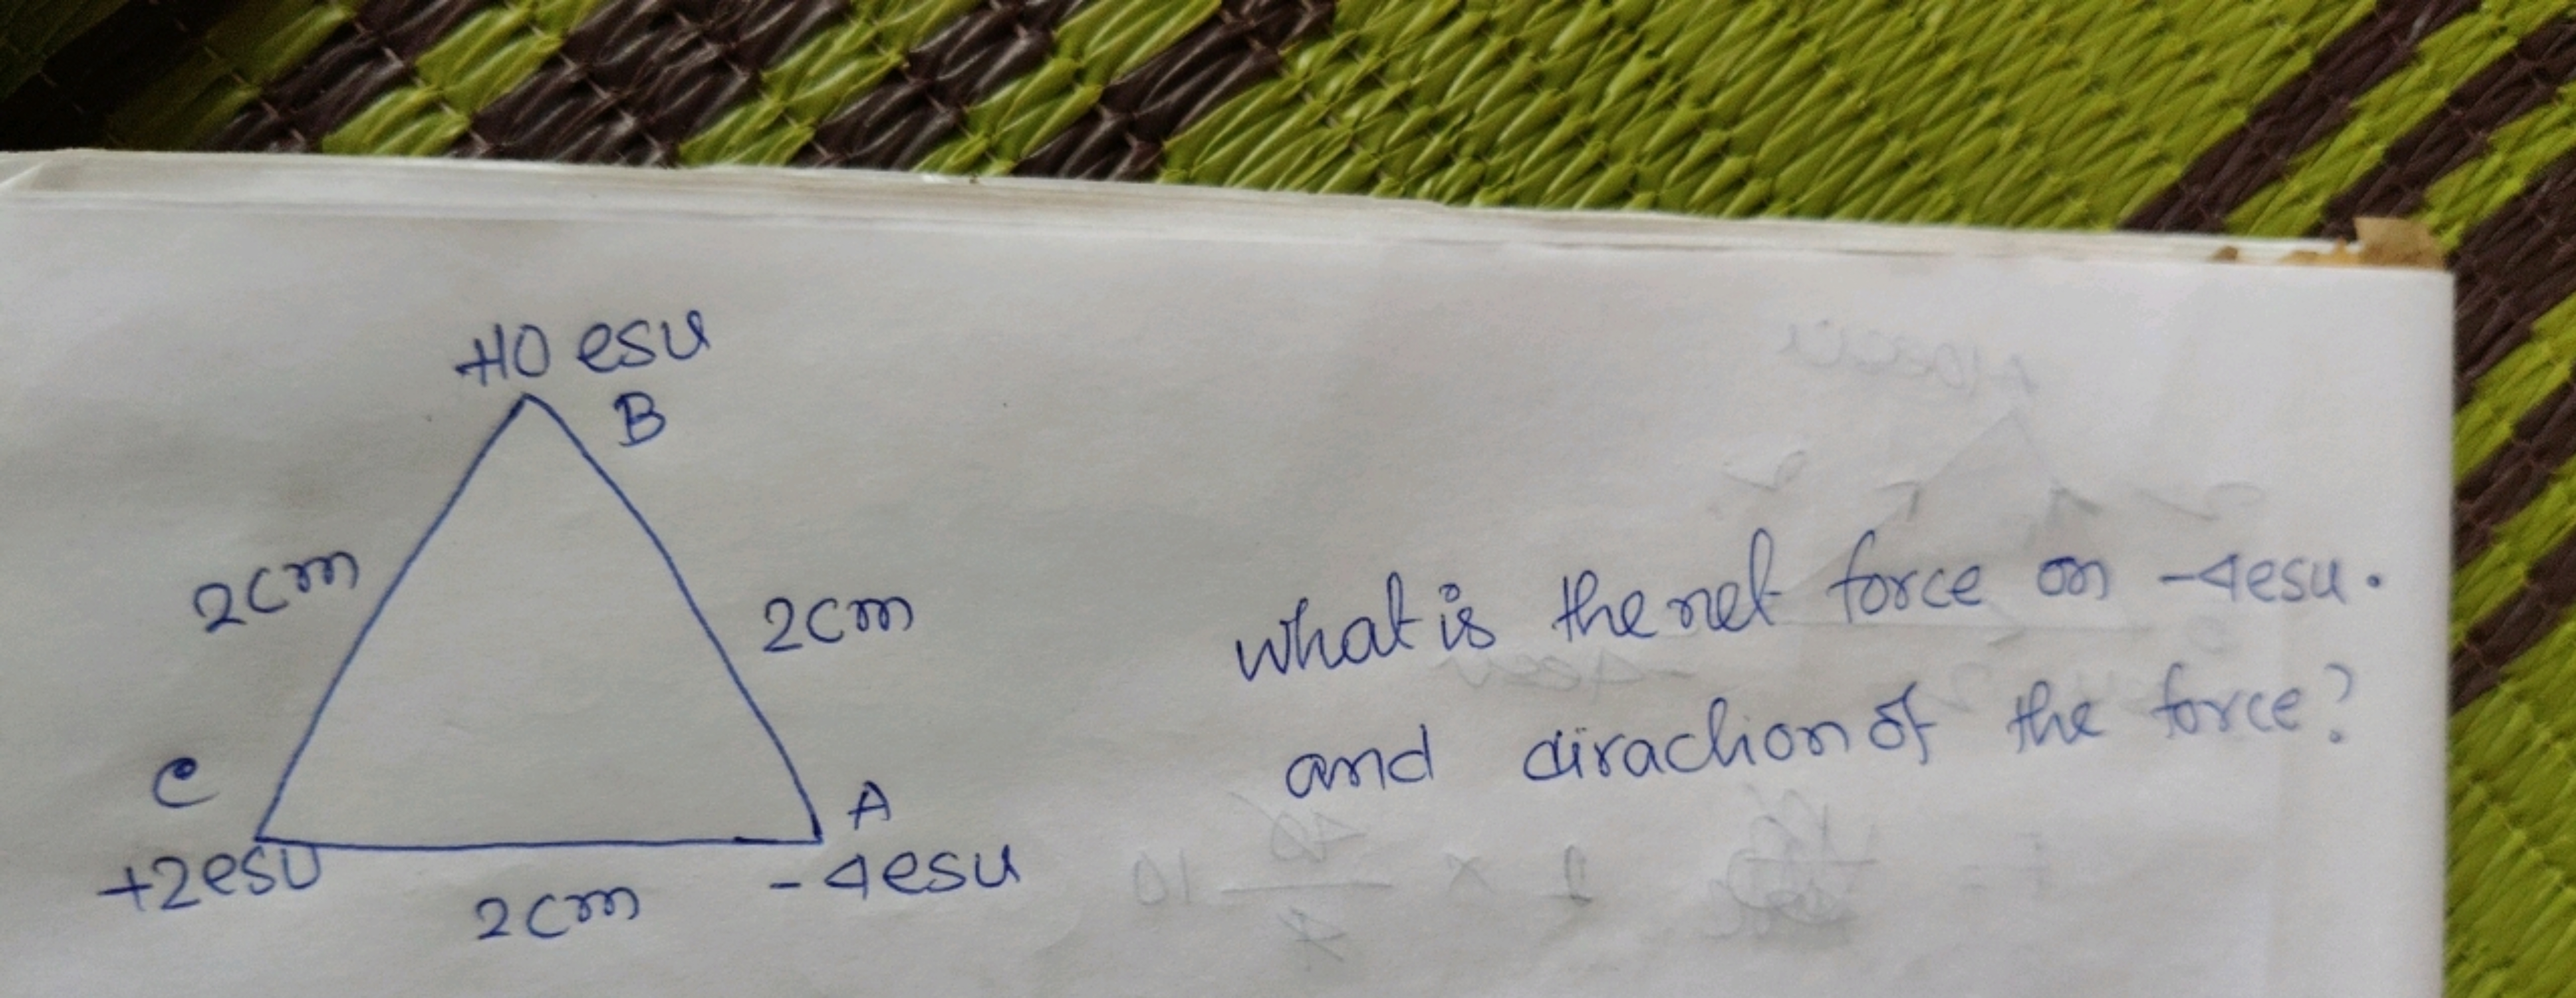 +10 esu
B
2cm
2cm
C
A
+2esu
-4esu
2cm
What is the net force on -4esu.
and dirachion of the force?